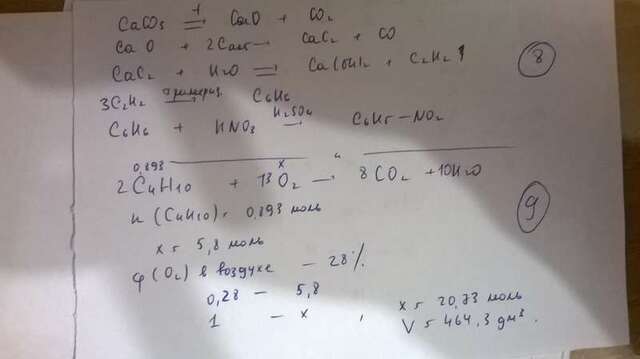 CaCO3 ⇌ CaO + CO2
CaO + 2C → CaC2 + CO
CaC2 + H2O = Ca(OH)2 + C2H2↑
8
3C2H2 тримериз. C6H6
C6H6 + HNO3 H2SO4 → C6H5-NO2
0,893 x
2C4H10 + 13O2 → 8CO2 + 10H2O
n (C4H10) = 0,893 моль
9
x = 5,8 моль
φ(O2) в воздухе - 28%.
0,28 - 5,8
1 - x , x = 20,73 моль
V = 464,3 дм³.